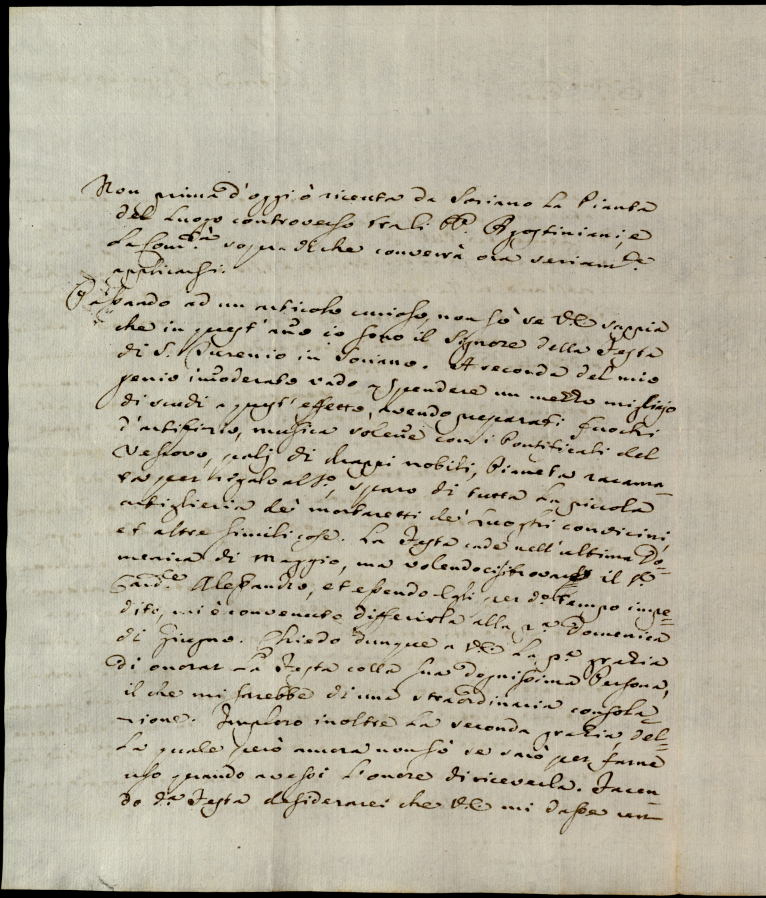 Non prima d'oggi ò ricevuta da Soriano la Pianta
del Luogo controverso tra li PP. Agostiniani, e
la Com.tà sopra di che converrà ora seriam.te
applicarsi.
Passando ad un articolo curioso, non sò se V.E. sappia
che in quest'anno io sono il Signore della Festa
di S. Eutenio in Soriano. A seconda del mio
genio immoderato vado a spendere un mezzo migliajo
di scudi a quest'effetto, avendo preparati fuochi
d'artifizio, musica solenne con i Pontificali del
Vescovo, palj di drappi nobili, Pianeta racama-
ta per regalo al S.to, sparo di tutta la piccola
artiglieria de' mortaretti de' luoghi convicini,
et altre simili cose. La Festa cade nell'ultima Do-
menica di Maggio, ma volendocisi trovare il S.r
Card.le Alessandro, et essendo Egli per d.o tempo impe-
dito, mi è convenuto differirla alla p.a Domenica
di Giugno. Chiedo dunque a V.E. la p.a grazia
di onorar la Festa colla sua degnissima Persona,
il che mi sarebbe di una straordinaria consola-
zione. Imploro inoltre la seconda grazia, del-
la quale però ancora non sò se sarò per farne
uso quando avessi l'onore di riceverla. Facen-
do d.a Festa desidererei che V.E. mi dasse un